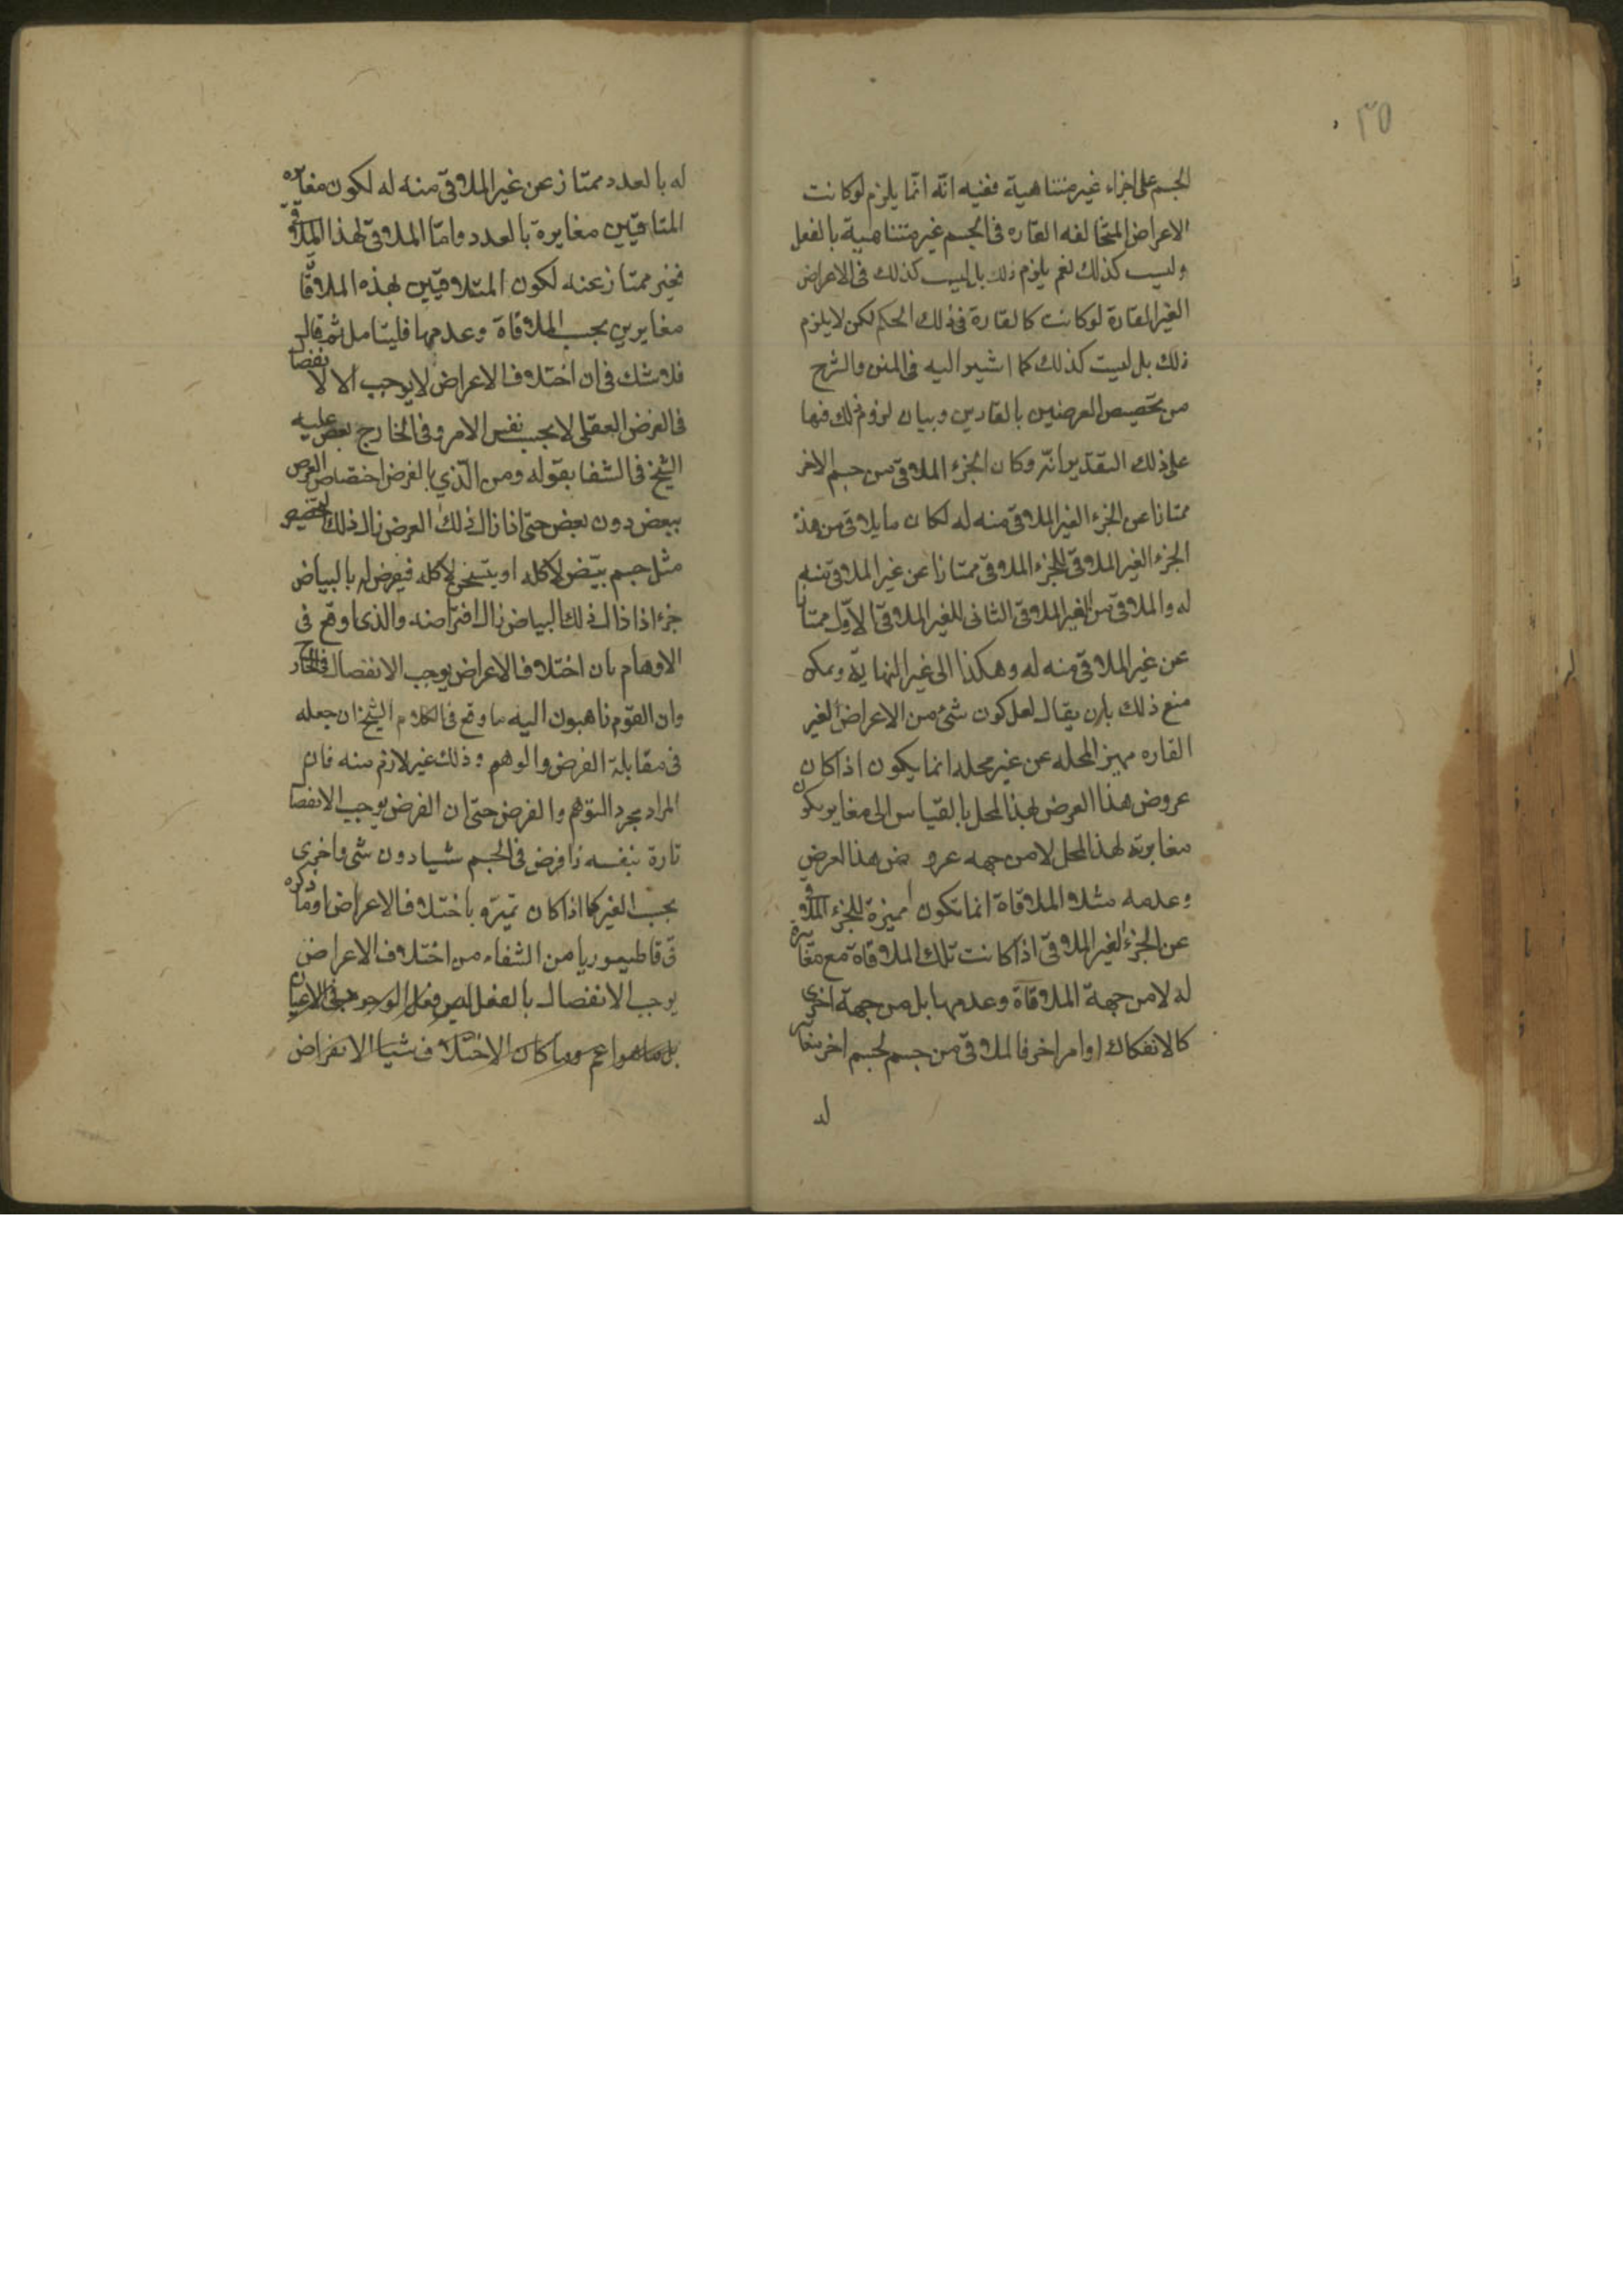 ٣٥
الجسم على اجزاء غير متناهية ففيه انّه انّما يلزم لوكانت
الاعراض المتخالفه القاره فى الجسم غير متناهية بالفعل
وليست كذلك نعم يلزم ذلك بل ليست كذلك فى الاعراض
الغير القارة لوكانت كالقارة فى ذلك الحكم لكن لا يلزم
ذلك بل ليست كذلك كما اشير اليه فى المتن والشرح
من تخصيص العرضين بالقارين وبيان لزوم ذلك فيها
على ذلك التقدير انّه لو كان الجزء الملاقى من جسم الاخر
ممتازا عن الجزء الغير الملاقى منه له لكان ما يلاقى من هذا
الجزء الغير الملاقى للجزء الملاقى ممتازا عن غير الملاقى منه
له والملاقى من الغير الملاقى الثانى للغير الملاقى الاوّل ممتازا
عن غير الملاقى منه له وهكذا الى غير النهاية ويمكن
منع ذلك بان يقال لعل كون شئ من الاعراض الغير
القاره مميز المحله عن غير محله انما يكون اذا كان
عروض هذا العرض لهذا المحل بالقياس الى مغاير يكون
مغايرته لهذا المحل لا من جهه عروض هذا العرض
وعدمه مثلا الملاقاة انما تكون مميزة للجزء الملاقى
عن الجزء الغير الملاقى اذا كانت تلك الملاقاة مع مغايرة
له لا من جهة الملاقاة وعدمها بل من جهة اخرى
كالانفكاك او امر اخر فالملاقى من جسم لجسم اخر مغاير
له
له بالعدد ممتاز عن غير الملاقى منه له لكون مغايره
المتلاقيين مغايرة بالعدد وامّا الملاقى لهذا الملاقى
فغير ممتاز عنه لكون المتلاقيين بهذه الملاقاة
مغايرين بحسب الملاقاة وعدمها فليتامل ثم قال
فلا شك فى ان اختلاف الاعراض لا يوجب الا الانفصال
فى الفرض العقلى لا بحسب نفس الامر وفى الخارج نص عليه
الشيخ فى الشفا بقوله ومن الّذي بالفرض اختصاص العرض
ببعض دون بعض حتى اذا زال ذلك العرض زال ذلك التخصيص
مثل جسم يبيّض لا كله او يتسخن لا كله فيفرض له بالبياض
جزء اذا زال ذلك البياض زال افتراضه والذى اوقع فى
الاوهام بان اختلاف الاعراض يوجب الانفصال فى الخارج
وان القوم ذاهبون اليه ما وقع فى كلام الشيخ ان جعله
فى مقابلة الفرض والوهم وذلك غير لازم منه فان
المراد مجرد التوهم والفرض حتى ان الفرض يوجب الانفصال
تارة بنفسه اذا فرض فى الجسم شيا دون شى واخرى
بحسب الغير كما اذا كان تميزه باختلاف الاعراض وما ذكره
فى قاطيغورياس من الشفاء من اختلاف الاعراض
يوجب الانفصال بالفعل ليس فعل الوجود فى الاعيان
بل ما هو اعم ولما كان الاختلاف شيا الانفراض